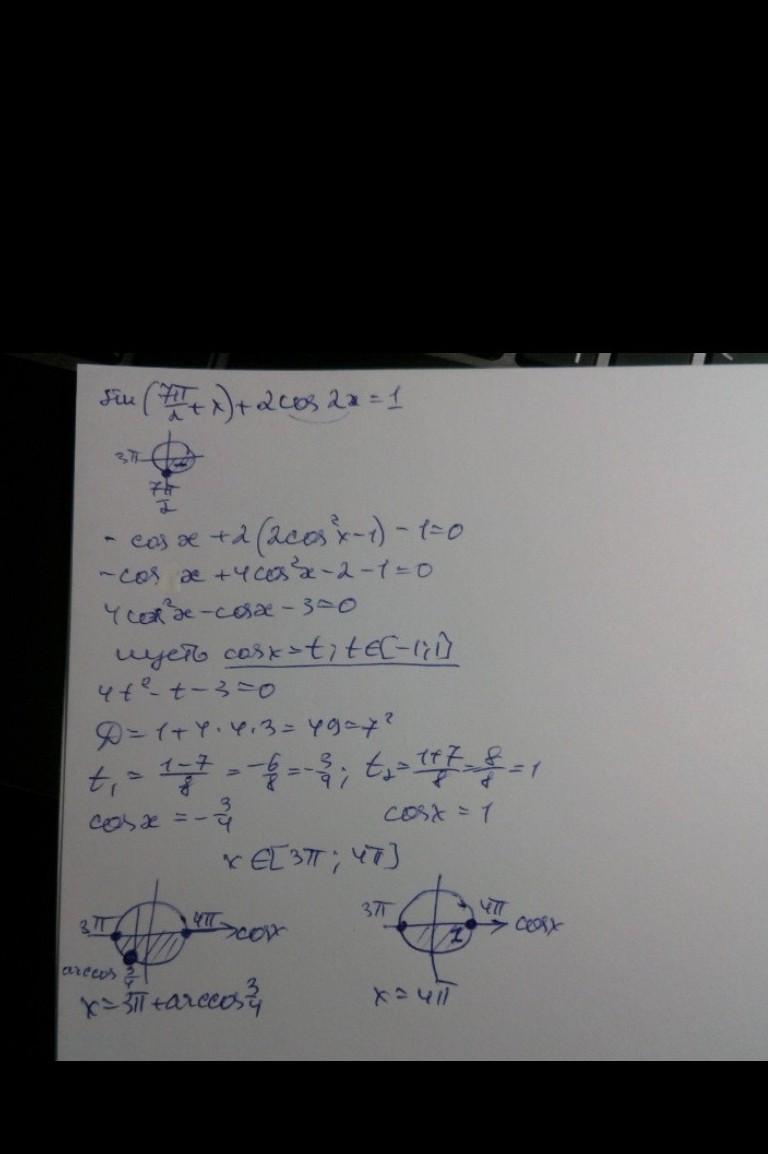 sin(7π/2 + x) + 2cos 2x = 1
3π
7π/2
- cos x + 2(2cos²x-1) - 1 = 0
-cos x + 4cos²x - 2 - 1 = 0
4cos²x - cosx - 3 = 0
пусть cosx = t; t∈[-1;1]
4t² - t - 3 = 0
D = 1 + 4·4·3 = 49 = 7²
t₁ = (1-7)/8 = -6/8 = -3/4; t₂ = (1+7)/8 = 8/8 = 1
cosx = -3/4 cosx = 1
x ∈ [3π; 4π]
3π 4π cosx 3π 4π cosx
1
arccos 3/4
x = 3π + arccos 3/4 x = 4π